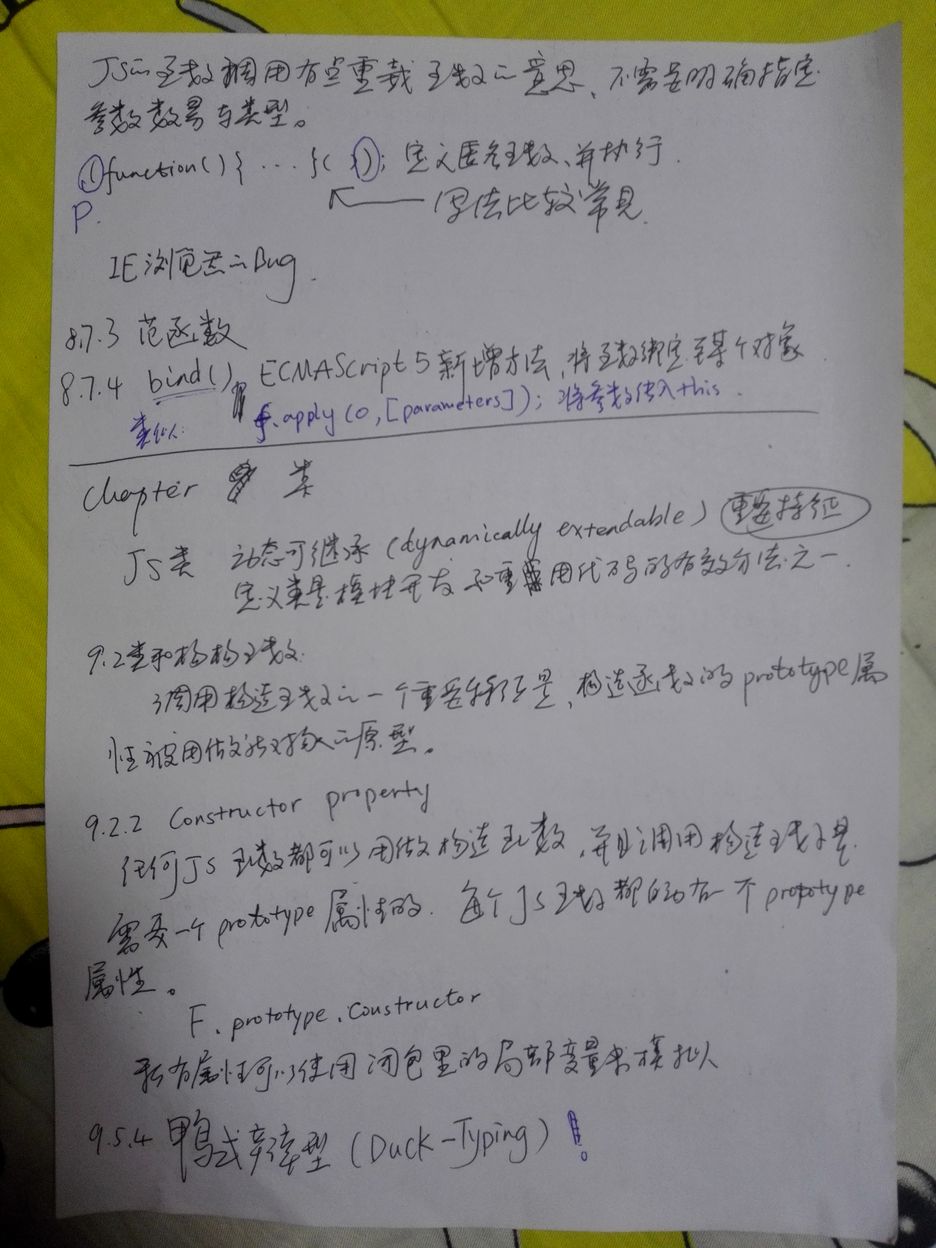 JS的函数调用有点重载函数的意思、不需要明确指定
参数数量与类型。
(function() { ... }( )); 定义匿名函数、并执行.
P. 写法比较常见.
IE浏览器的Bug.
8.7.3 范函数
8.7.4 bind(), ECMAScript 5 新增方法, 将函数绑定至某个对象
类似: f.apply(o,[parameters]); 将参数传入this.
Chapter 9 类
JS类 动态可继承 (dynamically extendable) 重要特征
定义类是模块开发和重用代码的有效方法之一.
9.2 类和构造函数.
调用构造函数的一个重要特征是, 构造函数的 prototype 属
性被用做新对象的原型。
9.2.2 Constructor property
任何JS函数都可以用做构造函数, 并且调用构造函数是
需要一个 prototype 属性的. 每个JS函数都自动有一个 prototype
属性。
F.prototype.constructor
私有属性可以使用闭包里的局部变量来模拟
9.5.4 鸭式辩型 (Duck-Typing) !